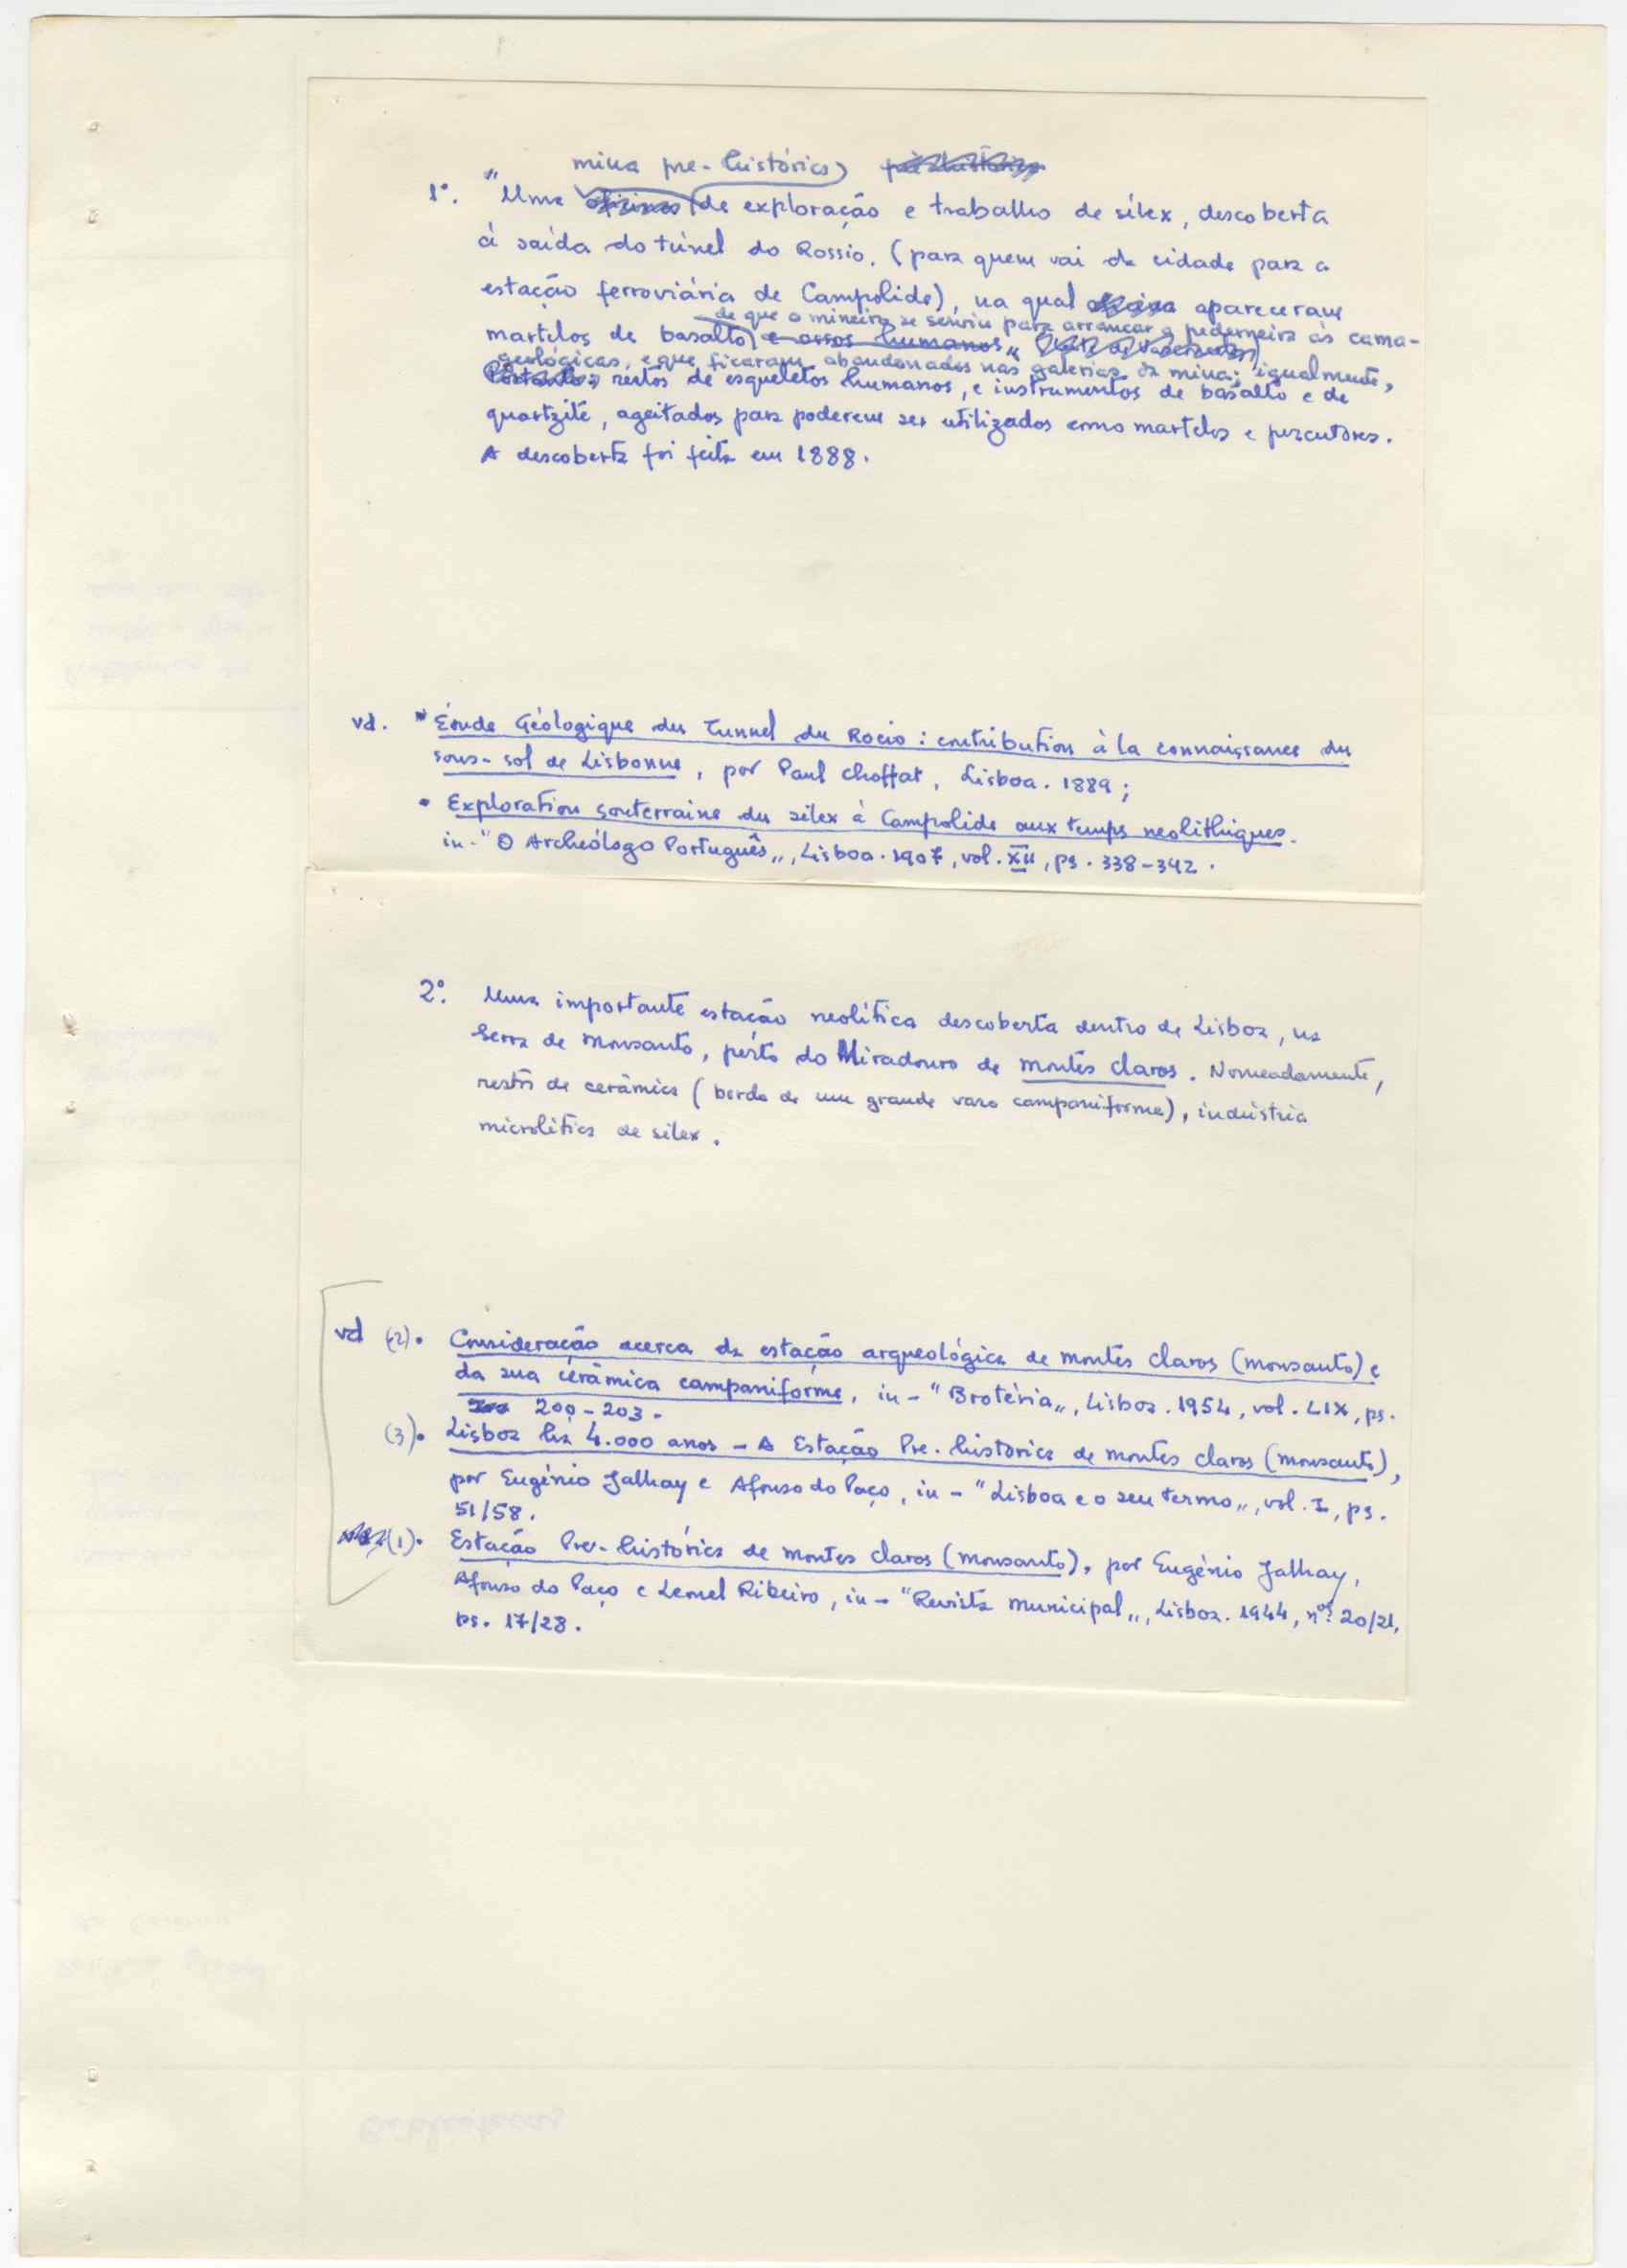 mina pre-histórica
1º. "Uma de exploração e trabalho de sílex, descoberta
à saída do túnel do Rossio. (para quem vai da cidade para a
estação ferroviária de Campolide), na qual apareceram
de que o mineiro se serviu para arrancar a pederneira às cama-
martelos de basalto e ossos humanos„
geológicas, e que ficaram abandonados nas galerias da mina; igualmente,
restos de esqueletos humanos, e instrumentos de basalto e de
quartzite, ageitados para poderem ser utilizados como martelos e percutores.
A descoberta foi feita em 1888.
vd. • Étude Géologique du Tunnel du Rocio : contribution à la connaissance du
sous-sol de Lisbonne, por Paul Choffat, Lisboa. 1889;
• Exploration souterraine du silex à Campolide aux temps neolithiques.
in-"O Archeólogo Português„, Lisboa. 1907, vol. XII, ps. 338-342.
2º. Uma importante estação neolítica descoberta dentro de Lisboa, na
Serra de Monsanto, perto do Miradouro de Montes Claros. Nomeadamente,
restos de cerâmica (bordo de um grande vaso campaniforme), indústria
microlítica de silex.
vd (2). Consideração acerca da estação arqueológica de Montes Claros (Monsanto) e
da sua cerâmica campaniforme, in-"Brotéria„, Lisboa. 1954, vol. LIX, ps.
200-203.
(3). Lisboa há 4.000 anos - A Estação Pre-historica de Montes Claros (Monsanto),
por Eugénio Jalhay e Afonso do Paço, in-"Lisboa e o seu termo„, vol. I, ps.
51/58.
(1). Estação Pre-histórica de Montes Claros (Monsanto), por Eugénio Jalhay,
Afonso do Paço e Lemel Ribeiro, in-"Revista Municipal„, Lisboa. 1944, nos. 20/21,
ps. 17/28.